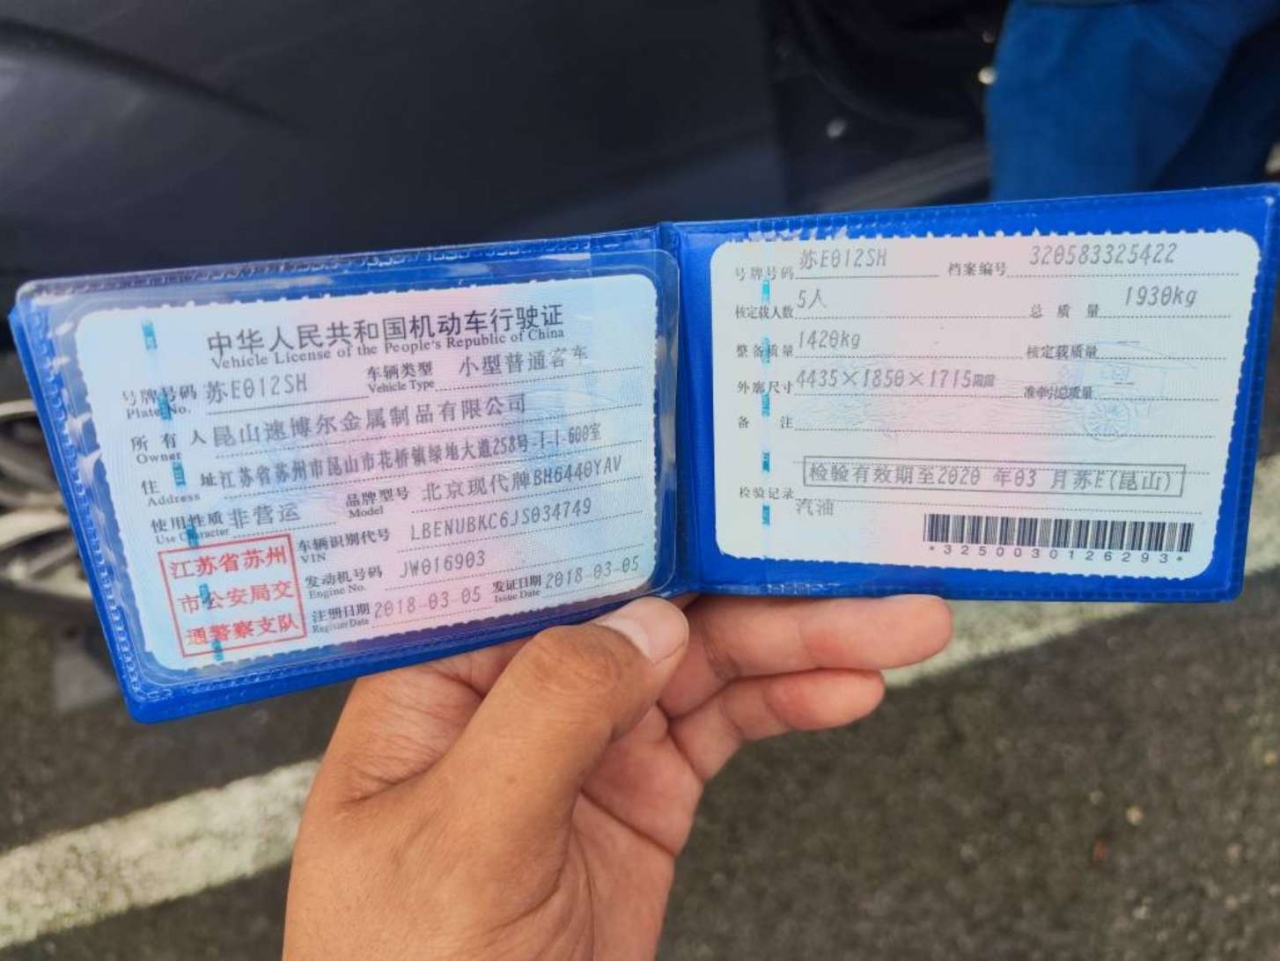 中华人民共和国机动车行驶证
Vehicle License of the People's Republic of China
号牌号码 苏E012SH 车辆类型 小型普通客车
Plate No. Vehicle Type
所有人 昆山速博尔金属制品有限公司
Owner
住址 江苏省苏州市昆山市花桥镇绿地大道258号-1-1-600室
Address
使用性质 非营运 品牌型号 北京现代牌BH6440YAV
Use Character Model
车辆识别代号 LBENUBKC6JS034749
VIN
发动机号码 JW016903
Engine No.
注册日期 2018-03-05 发证日期 2018-03-05
Register Date Issue Date
江苏省苏州
市公安局交
通警察支队
号牌号码 苏E012SH 档案编号 320583325422
核定载人数 5人 总质量 1930kg
整备质量 1420kg 核定载质量 --
外廓尺寸 4435×1850×1715mm 准牵引总质量 --
备注
检验有效期至2020 年03 月苏E(昆山)
检验记录
汽油
*3250030126293*